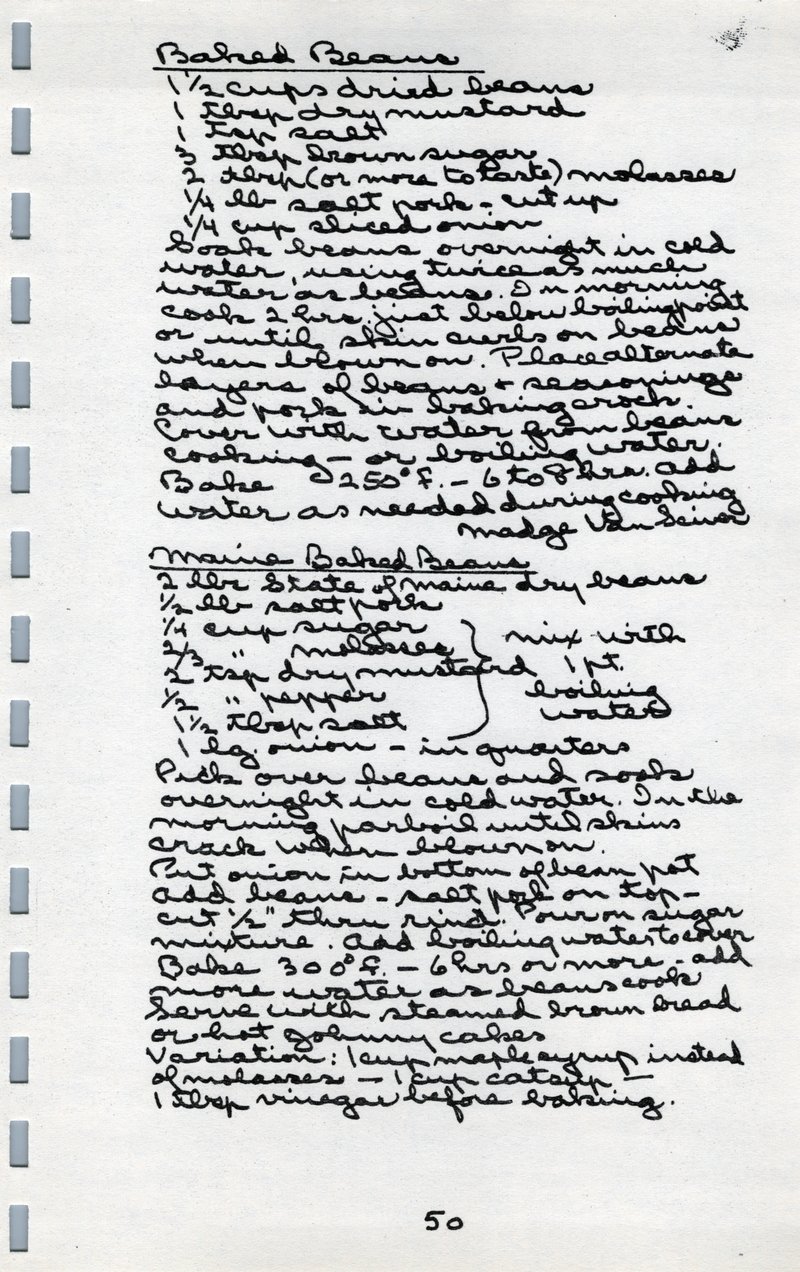 Baked Beans
1 1/2 cups dried beans
1 tbsp dry mustard
1 tsp salt
3 tbsp brown sugar
2 tbsp (or more to taste) molasses
1/4 lb salt pork - cut up
1/4 cup sliced onion
Soak beans overnight in cold
water, using twice as much
water as beans. In morning
cook 2 hrs. just below boiling point
or until skin curls on beans
when blown on. Place alternate
layers of beans + seasonings
and pork in baking crock.
Cover with water from beans
cooking - or boiling water.
Bake 250° f. - 6 to 8 hrs. add
water as needed during cooking
Madge Van Sciver
Maine Baked Beans
2 lbs State of Maine dry beans
1/2 lb salt pork
1/4 cup sugar
2/3 " molasses } mix with
2 tsp dry mustard 1 pt.
1/2 " pepper boiling
1 1/2 tbsp salt water
1 lg. onion - in quarters
Pick over beans and soak
overnight in cold water. In the
morning parboil until skins
crack when blown on.
Put onion in bottom of bean pot
add beans - salt pork on top -
cut 1/2" thru rind. Pour on sugar
mixture. Add boiling water to cover
Bake 300° f. - 6 hrs or more - add
more water as beans cook
Serve with steamed brown bread
or hot Johnny cakes
Variation: 1 cup maple syrup instead
of molasses - 1 cup catsup -
1 tbsp vinegar before baking.
50